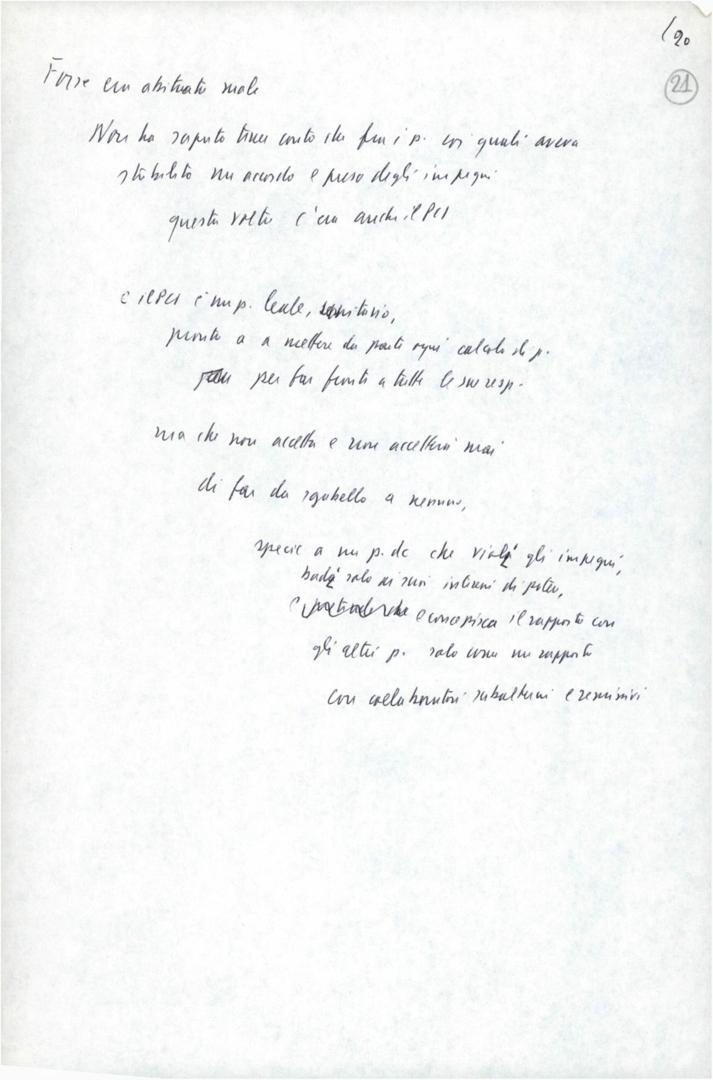 /20
21
Forse era abituata male
Non ha saputo tener conto che fra i p. coi quali aveva
stabilito un accordo e preso degli impegni
questa volta c'era anche il PCI
e il PCI è un p. leale, unitario,
pronto a a mettere da parte ogni calcolo di p.
per far fronte a tutte le sue resp.
ma che non accetta e non accetterà mai
di far da sgabello a nessuno,
specie a un p. dc che violi gli impegni,
badi solo ai suoi interessi di potere,
e pretende che e concepisca il rapporto con
gli altri p. solo come un rapporto
con collaboratori subalterni e remissivi